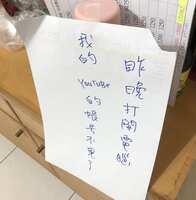 昨晚打開電腦,
我的YouTube的帳号不見了